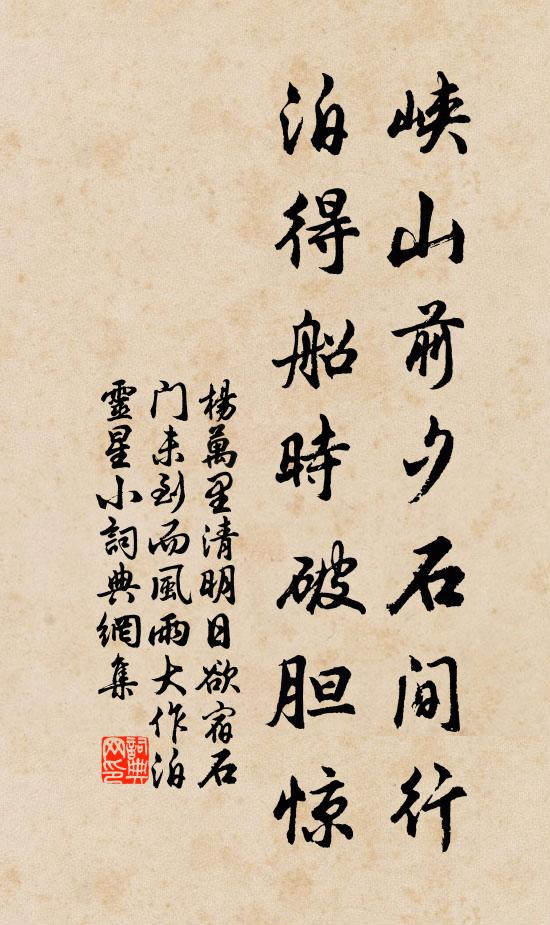 峡山前夕石间行
泊得船時破胆惊
楊萬里清明日欲宿石
门未到而風雨大作泊
靈星小詞典網集
詞典
网印